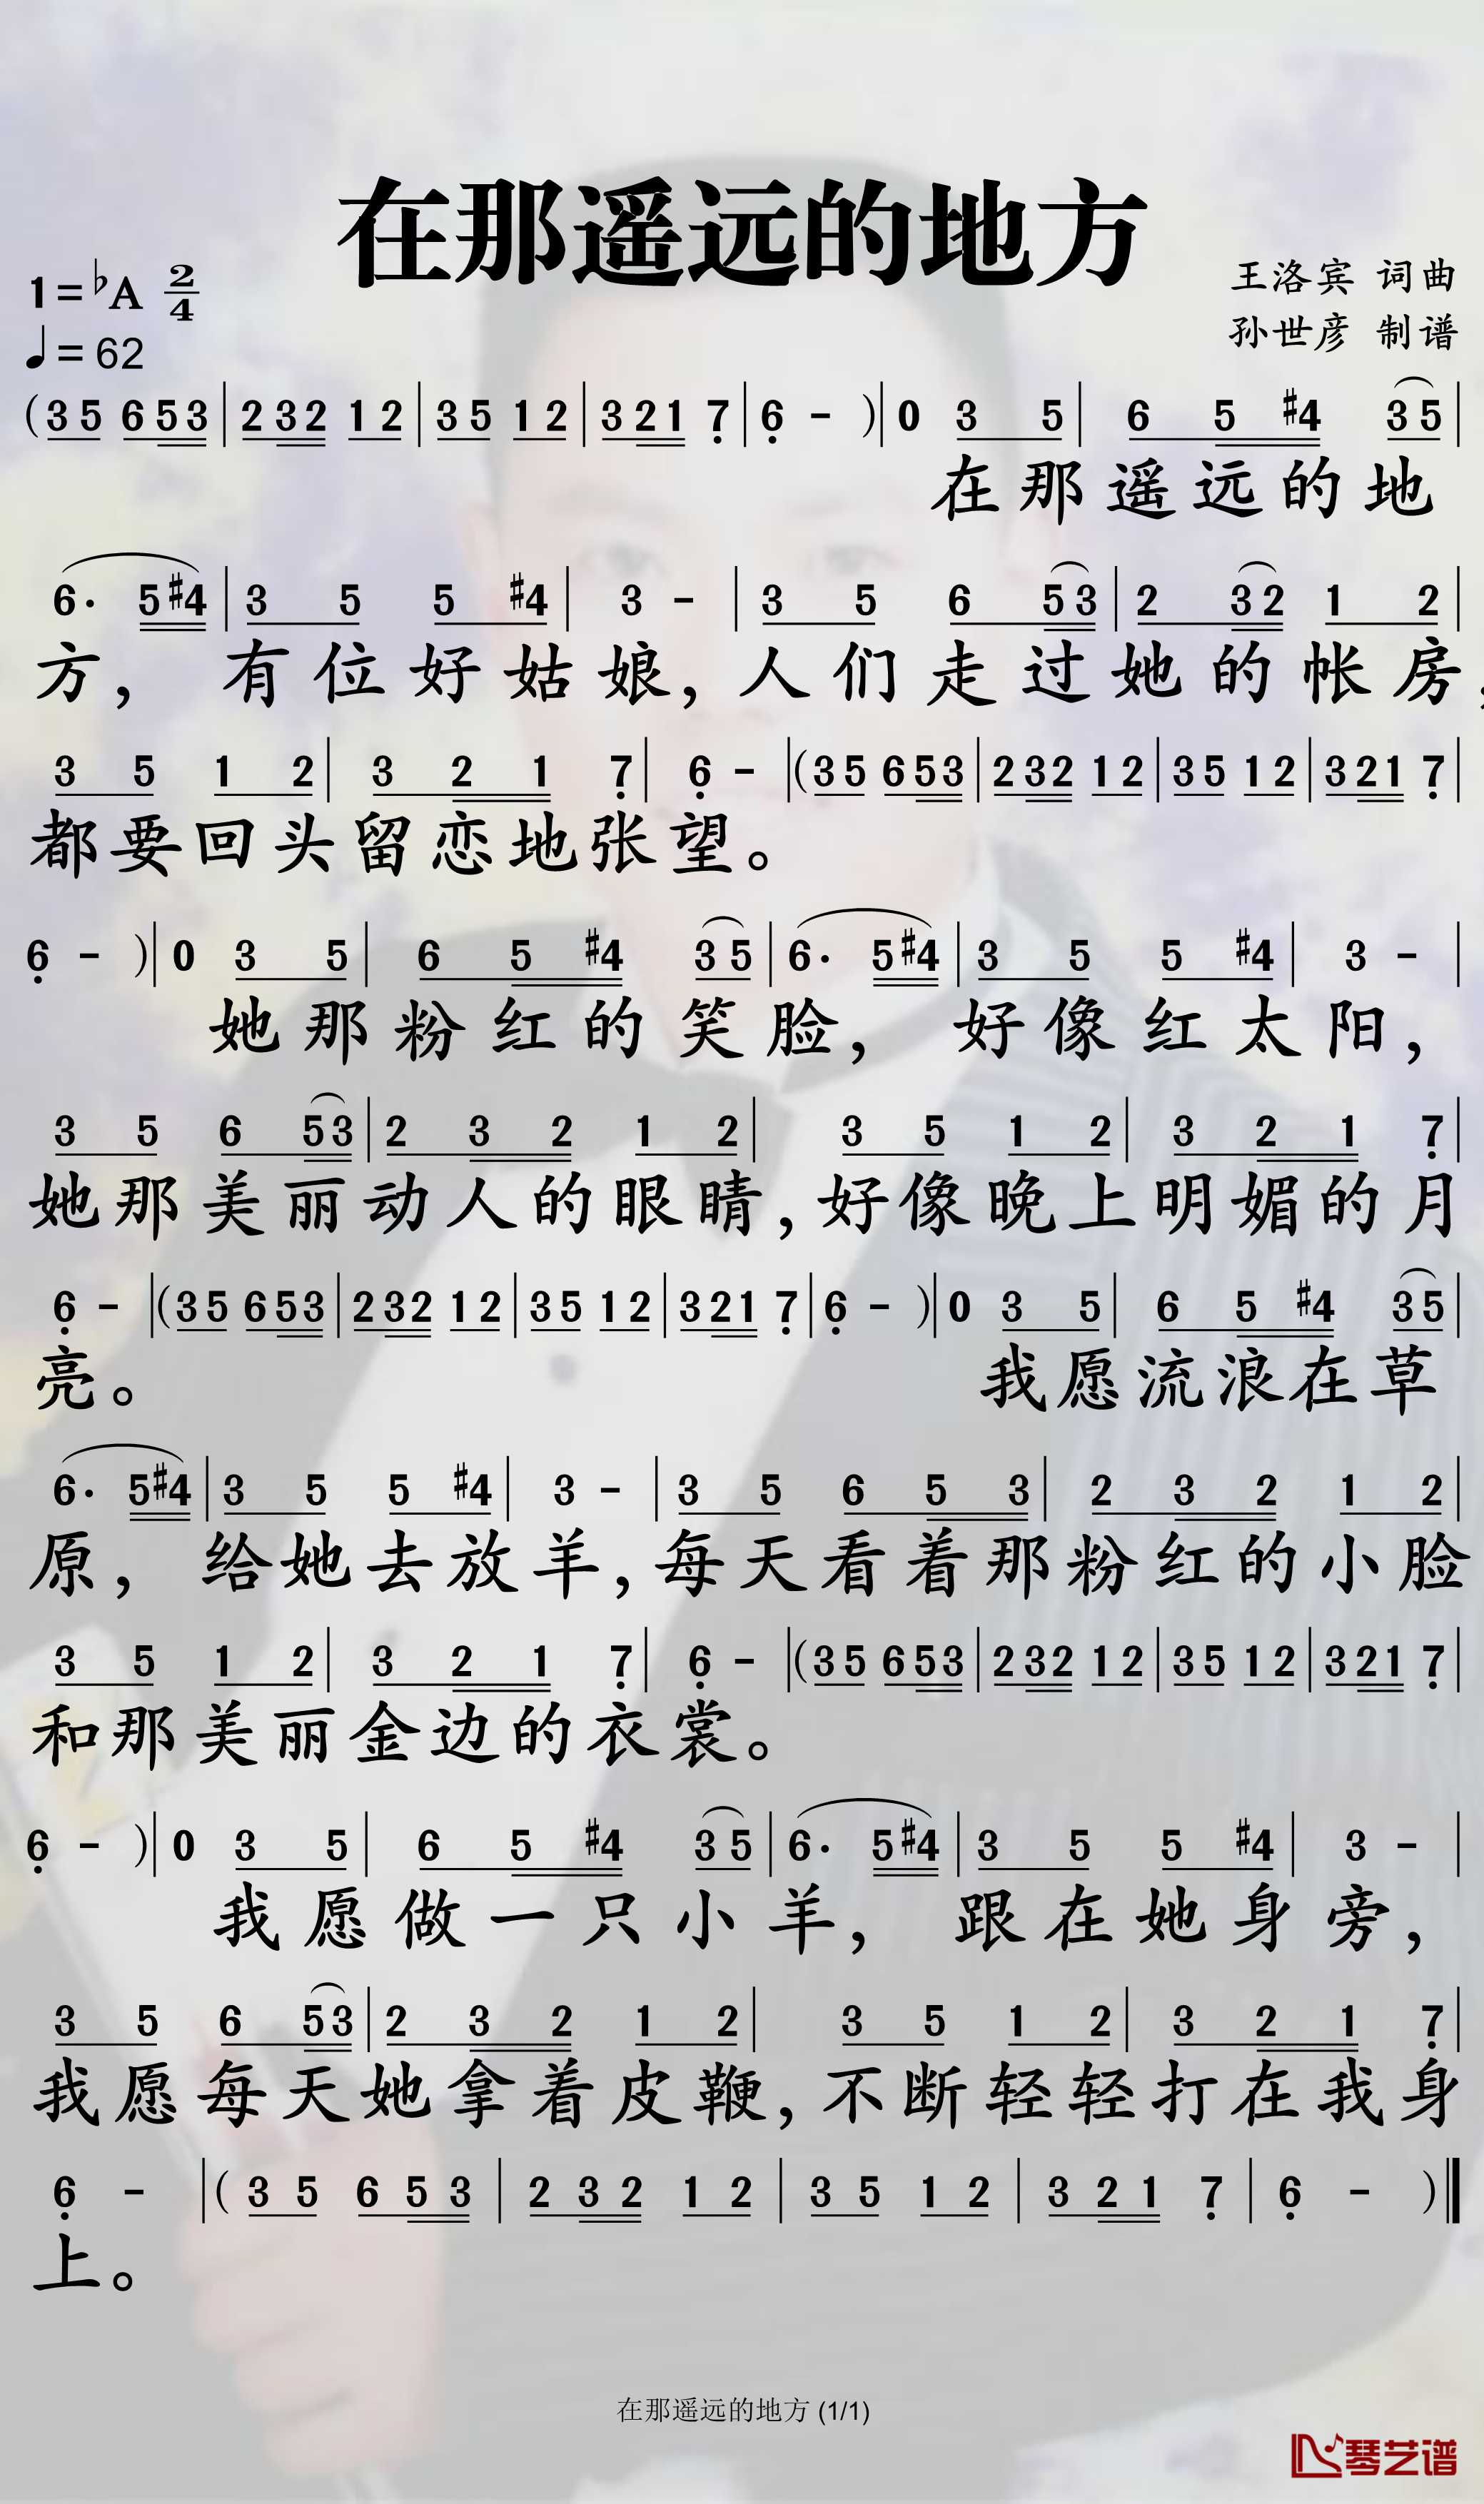 在那遥远的地方
1=♭A 2/4
王洛宾 词曲
♩=62
孙世彦 制谱
(3 5 6 5 3 | 2 3 2 1 2 | 3 5 1 2 | 3 2 1 7̣ | 6̣ - ) | 0 3 5 | 6 5 #4 3 5 |
在那遥远的地
6· 5 #4 | 3 5 5 #4 | 3 - | 3 5 6 5 3 | 2 3 2 1 2 |
方，有位好姑娘，人们走过她的帐房，
3 5 1 2 | 3 2 1 7̣ | 6̣ - | (3 5 6 5 3 | 2 3 2 1 2 | 3 5 1 2 | 3 2 1 7̣ |
都要回头留恋地张望。
6̣ - ) | 0 3 5 | 6 5 #4 3 5 | 6· 5 #4 | 3 5 5 #4 | 3 - |
她那粉红的笑脸，好像红太阳，
3 5 6 5 3 | 2 3 2 1 2 | 3 5 1 2 | 3 2 1 7̣ |
她那美丽动人的眼睛，好像晚上明媚的月
6̣ - | (3 5 6 5 3 | 2 3 2 1 2 | 3 5 1 2 | 3 2 1 7̣ | 6̣ - ) | 0 3 5 | 6 5 #4 3 5 |
亮。我愿流浪在草
6· 5 #4 | 3 5 5 #4 | 3 - | 3 5 6 5 3 | 2 3 2 1 2 |
原，给她去放羊，每天看着那粉红的小脸
3 5 1 2 | 3 2 1 7̣ | 6̣ - | (3 5 6 5 3 | 2 3 2 1 2 | 3 5 1 2 | 3 2 1 7̣ |
和那美丽金边的衣裳。
6̣ - ) | 0 3 5 | 6 5 #4 3 5 | 6· 5 #4 | 3 5 5 #4 | 3 - |
我愿做一只小羊，跟在她身旁，
3 5 6 5 3 | 2 3 2 1 2 | 3 5 1 2 | 3 2 1 7̣ |
我愿每天她拿着皮鞭，不断轻轻打在我身
6̣ - | (3 5 6 5 3 | 2 3 2 1 2 | 3 5 1 2 | 3 2 1 7̣ | 6̣ - ) ‖
上。
在那遥远的地方 (1/1)
琴艺谱